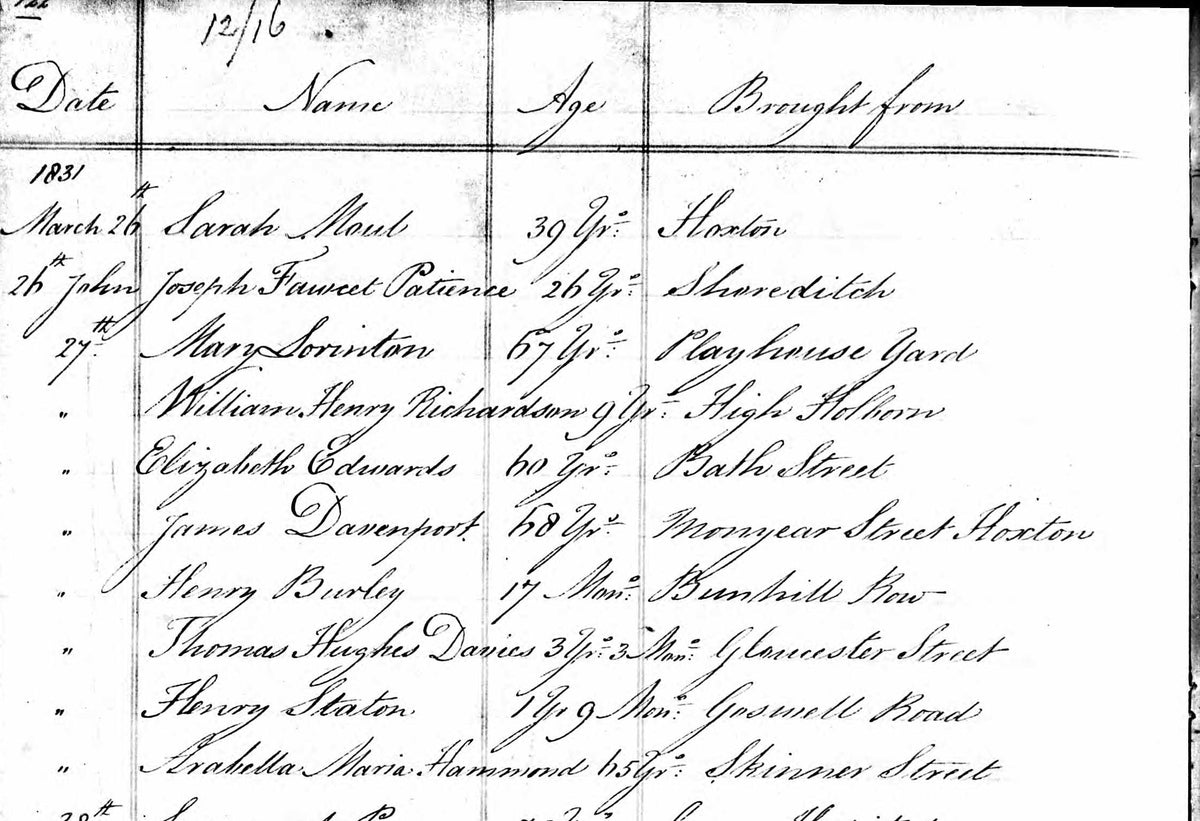 12/16
Date Name Age Brought from
1831
March 26th Sarah Maul 39 Yrs. Hoxton
26th John Joseph Fawcet Patience 26 Yrs. Shoreditch
27th Mary Lorinton 67 Yrs. Playhouse Yard
" William Henry Richardson 9 Yrs. High Holborn
" Elizabeth Edwards 60 Yrs. Bath Street
" James Davenport 68 Yrs. Monyear Street Hoxton
" Henry Burley 17 Mons. Bunhill Row
" Thomas Hughes Davies 3 Yrs. 3 Mons. Gloucester Street
" Henry Staton 1 Yr 9 Mons. Goswell Road
" Arabella Maria Hammond 65 Yrs. Skinner Street
28th